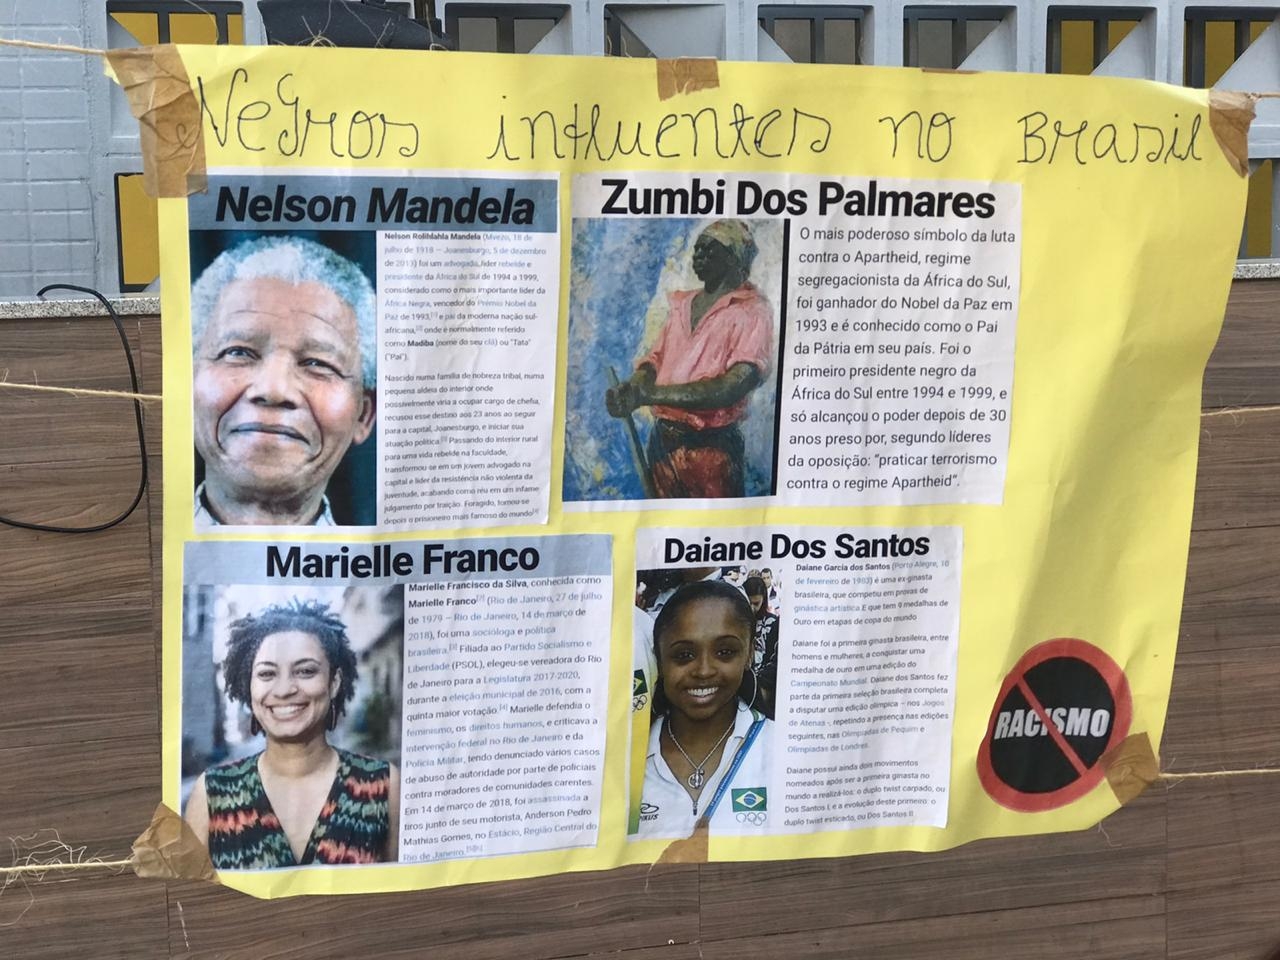 Negros influentes no Brasil
Nelson Mandela
Nelson Rolihlahla Mandela (Mvezo, 18 de
julho de 1918 – Joanesburgo, 5 de dezembro
de 2013) foi um advogado, líder rebelde e
presidente da África do Sul de 1994 a 1999,
considerado como o mais importante líder da
África Negra, vencedor do Prêmio Nobel da
Paz de 1993,[1] e pai da moderna nação sul-
africana,[2] onde é normalmente referido
como Madiba (nome do seu clã) ou "Tata"
("Pai").
Nascido numa família de nobreza tribal, numa
pequena aldeia do interior onde
possivelmente viria a ocupar cargo de chefia,
recusou esse destino aos 23 anos ao seguir
para a capital, Joanesburgo, e iniciar sua
atuação política.[3] Passando do interior rural
para uma vida rebelde na faculdade,
transformou-se em um jovem advogado na
capital e líder da resistência não violenta da
juventude, acabando como réu em um infame
julgamento por traição. Foragido, tornou-se
depois o prisioneiro mais famoso do mundo
Zumbi Dos Palmares
O mais poderoso símbolo da luta
contra o Apartheid, regime
segregacionista da África do Sul,
foi ganhador do Nobel da Paz em
1993 e é conhecido como o Pai
da Pátria em seu país. Foi o
primeiro presidente negro da
África do Sul entre 1994 e 1999, e
só alcançou o poder depois de 30
anos preso por, segundo líderes
da oposição: “praticar terrorismo
contra o regime Apartheid”.
Marielle Franco
Marielle Francisco da Silva, conhecida como
Marielle Franco[2] (Rio de Janeiro, 27 de julho
de 1979 – Rio de Janeiro, 14 de março de
2018), foi uma socióloga e política
brasileira.[3] Filiada ao Partido Socialismo e
Liberdade (PSOL), elegeu-se vereadora do Rio
de Janeiro para a Legislatura 2017-2020,
durante a eleição municipal de 2016, com a
quinta maior votação.[4] Marielle defendia o
feminismo, os direitos humanos, e criticava a
intervenção federal no Rio de Janeiro e da
Polícia Militar, tendo denunciado vários casos
de abuso de autoridade por parte de policiais
contra moradores de comunidades carentes.
Em 14 de março de 2018, foi assassinada a
tiros junto de seu motorista, Anderson Pedro
Mathias Gomes, no Estácio, Região Central do
Rio de Janeiro.
Daiane Dos Santos
Daiane Garcia dos Santos (Porto Alegre, 10
de fevereiro de 1983) é uma ex-ginasta
brasileira, que competiu em provas de
ginástica artística.E que tem 9 medalhas de
Ouro em etapas de copa do mundo
Daiane foi a primeira ginasta brasileira, entre
homens e mulheres, a conquistar uma
medalha de ouro em uma edição do
Campeonato Mundial. Daiane dos Santos fez
parte da primeira seleção brasileira completa
a disputar uma edição olímpica – nos Jogos
de Atenas -, repetindo a presença nas edições
seguintes, nas Olimpíadas de Pequim e
Olimpíadas de Londres.
Daiane possui ainda dois movimentos
nomeados após ser a primeira ginasta no
mundo a realizá-los: o duplo twist carpado, ou
Dos Santos I, e a evolução deste primeiro: o
duplo twist esticado, ou Dos Santos II.
RACISMO